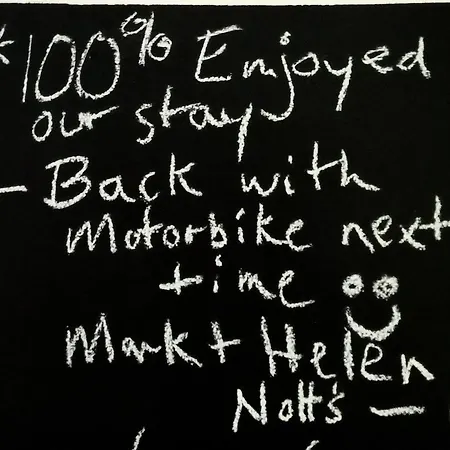 * 100% Enjoyed
our stay
- Back with
Motorbike next
time
Mark + Helen
Nott's -